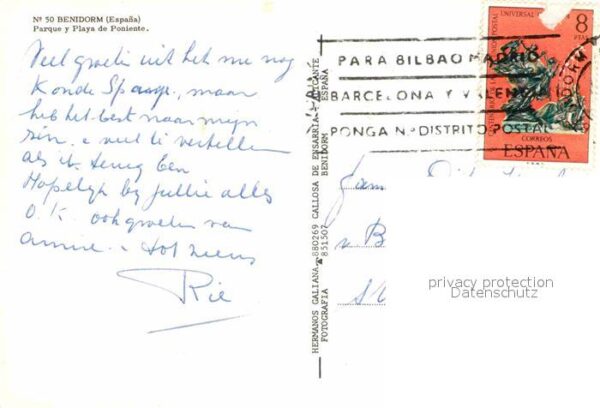 Nº 50 BENIDORM (España)
Parque y Playa de Poniente.
Veel groeten uit het me nog
Koude Spanje, maar
heb het best naar mijn
zin. veel te vertellen
als ik terug ben
Hopelijk bij jullie alles
O.K. ook groeten van
Annie. tot ziens
Rie
HERMANOS GALIANA - 880269 CALLOSA DE ENSARRIA - ALICANTE
FOTOGRAFIA 851507 BENIDORM ESPAÑA
PARA BILBAO MADRID
BARCELONA Y VALENCIA
PONGA Nº DISTRITO POSTAL
UNIVERSAL
POSTAL
8
PTAS
CORREOS
ESPAÑA
Fam
privacy protection
Datenschutz